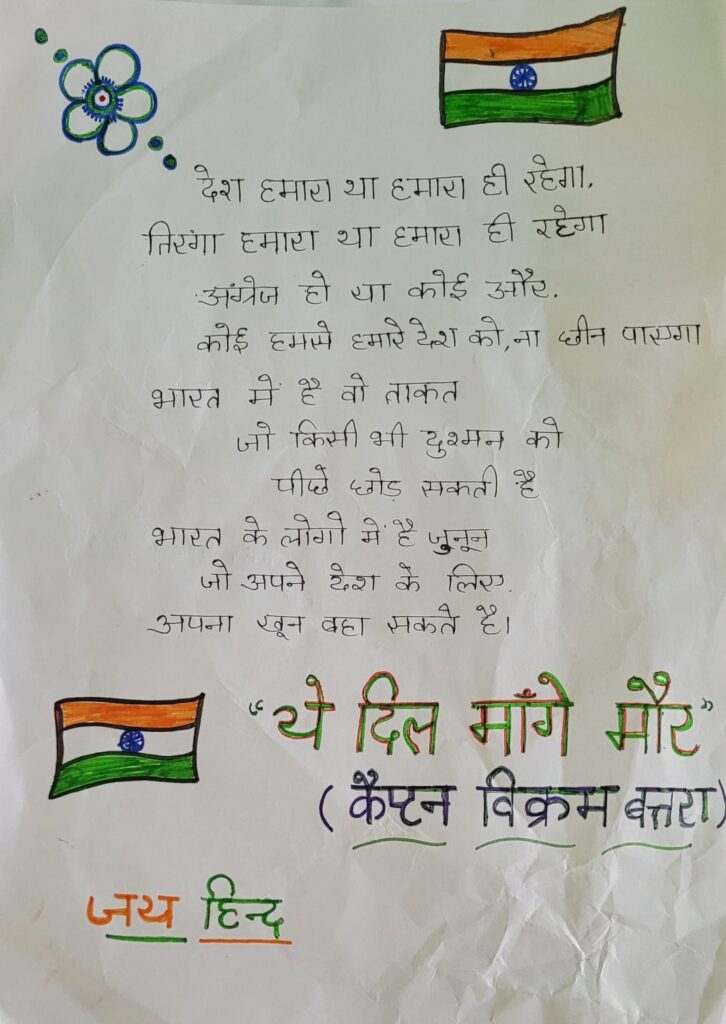 देश हमारा था हमारा ही रहेगा,
तिरंगा हमारा था हमारा ही रहेगा
अंग्रेज हो या कोई और,
कोई हमसे हमारे देश को, ना छीन पाएगा
भारत में है वो ताकत
जो किसी भी दुश्मन को
पीछे छोड़ सकती है
भारत के लोगो में है जुनून
जो अपने देश के लिए,
अपना खून बहा सकते है।
“ये दिल माँगे मौर”
(कैप्टन विक्रम बत्तरा)
जय हिन्द